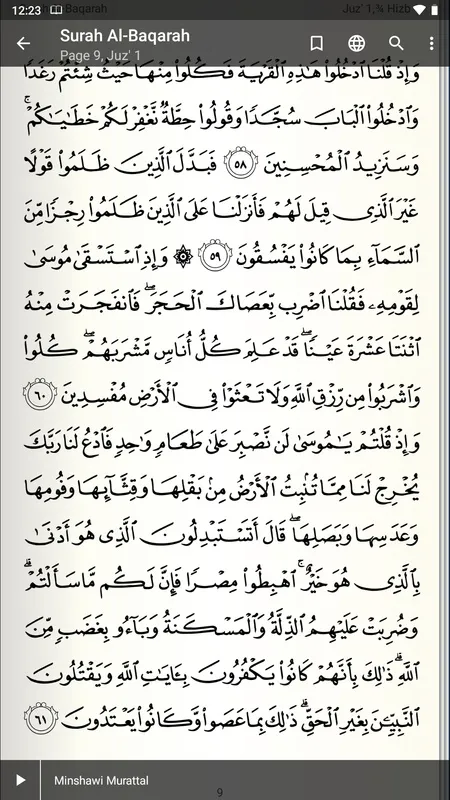 12:23
Surah Al-Baqarah
Page 9, Juz' 1
Juz' 1, ¾ Hizb
وَإِذْ قُلْنَا ٱدْخُلُوا۟ هَـٰذِهِ ٱلْقَرْيَةَ فَكُلُوا۟ مِنْهَا حَيْثُ شِئْتُمْ رَغَدًا
وَٱدْخُلُوا۟ ٱلْبَابَ سُجَّدًا وَقُولُوا۟ حِطَّةٌ نَّغْفِرْ لَكُمْ خَطَـٰيَـٰكُمْ ۚ
وَسَنَزِيدُ ٱلْمُحْسِنِينَ ٥٨ فَبَدَّلَ ٱلَّذِينَ ظَلَمُوا۟ قَوْلًا
غَيْرَ ٱلَّذِى قِيلَ لَهُمْ فَأَنزَلْنَا عَلَى ٱلَّذِينَ ظَلَمُوا۟ رِجْزًا مِّنَ
ٱلسَّمَآءِ بِمَا كَانُوا۟ يَفْسُقُونَ ٥٩ ۞ وَإِذِ ٱسْتَسْقَىٰ مُوسَىٰ
لِقَوْمِهِۦ فَقُلْنَا ٱضْرِب بِّعَصَاكَ ٱلْحَجَرَ ۖ فَٱنفَجَرَتْ مِنْهُ
ٱثْنَتَا عَشْرَةَ عَيْنًا ۖ قَدْ عَلِمَ كُلُّ أُنَاسٍ مَّشْرَبَهُمْ ۖ كُلُوا۟
وَٱشْرَبُوا۟ مِن رِّزْقِ ٱللَّهِ وَلَا تَعْثَوْا۟ فِى ٱلْأَرْضِ مُفْسِدِينَ ٦٠
وَإِذْ قُلْتُمْ يَـٰمُوسَىٰ لَن نَّصْبِرَ عَلَىٰ طَعَامٍ وَٰحِدٍ فَٱدْعُ لَنَا رَبَّكَ
يُخْرِجْ لَنَا مِمَّا تُنۢبِتُ ٱلْأَرْضُ مِنۢ بَقْلِهَا وَقِثَّآئِهَا وَفُومِهَا
وَعَدَسِهَا وَبَصَلِهَا ۖ قَالَ أَتَسْتَبْدِلُونَ ٱلَّذِى هُوَ أَدْنَىٰ
بِٱلَّذِى هُوَ خَيْرٌ ۚ ٱهْبِطُوا۟ مِصْرًا فَإِنَّ لَكُم مَّا سَأَلْتُمْ ۗ
وَضُرِبَتْ عَلَيْهِمُ ٱلذِّلَّةُ وَٱلْمَسْكَنَةُ وَبَآءُو بِغَضَبٍ مِّنَ
ٱللَّهِ ۗ ذَٰلِكَ بِأَنَّهُمْ كَانُوا۟ يَكْفُرُونَ بِـَٔايَـٰتِ ٱللَّهِ وَيَقْتُلُونَ
ٱلنَّبِيِّـۧنَ بِغَيْرِ ٱلْحَقِّ ۗ ذَٰلِكَ بِمَا عَصَوا۟ وَّكَانُوا۟ يَعْتَدُونَ ٦١
Minshawi Murattal
9